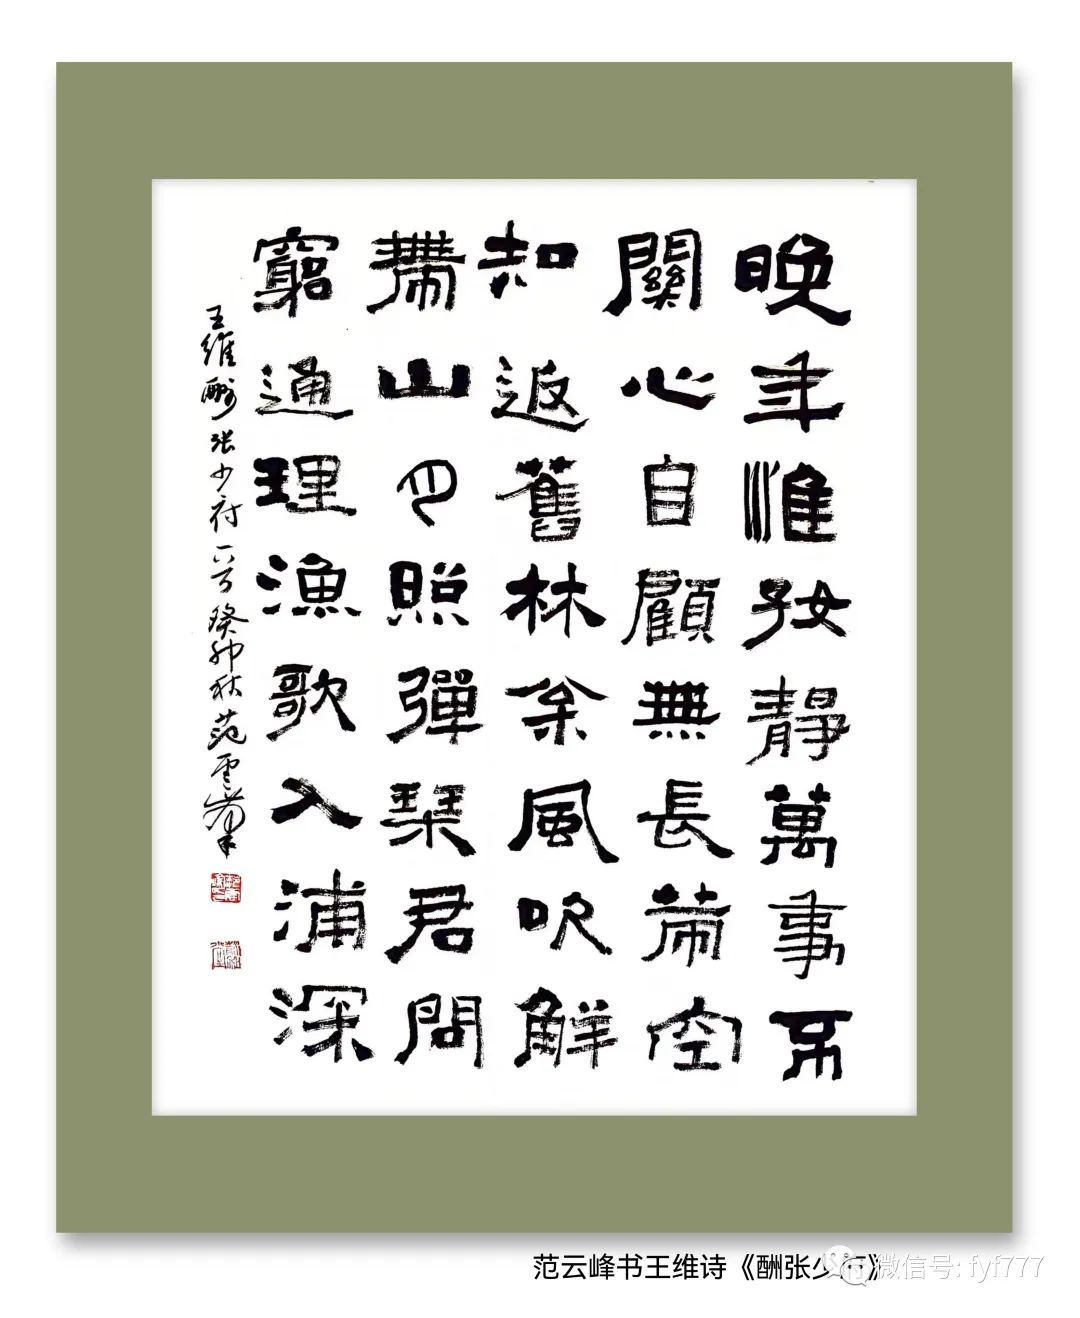 晚年惟好靜萬事不
關心自顧無長策空
知返舊林松風吹解
帶山月照彈琴君問
窮通理漁歌入浦深
王維酬张少府一首癸卯秋范雲峯
范云峰书王维诗《酬张少府》
微信号: fyf777